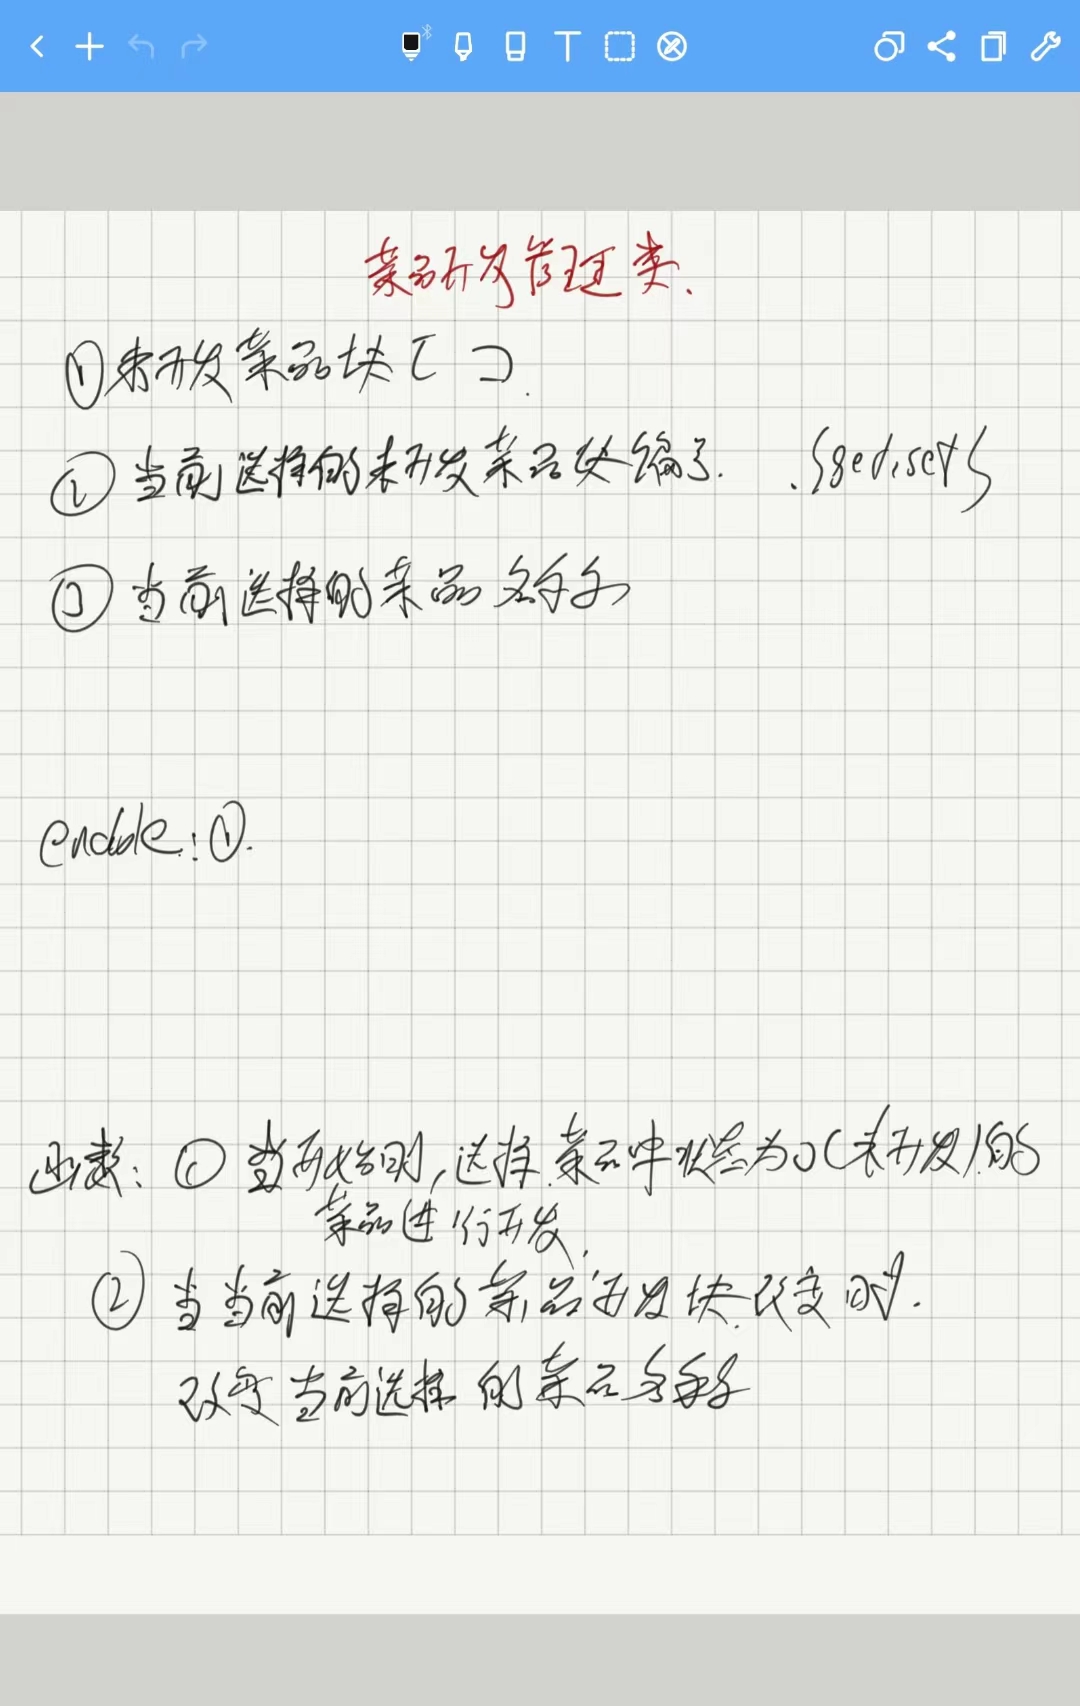 菜品开发管理类.
①未开发菜品块[ ].
②当前选择的未开发菜品块编号. .{get,set}
③当前选择的菜品名称
enable:①.
函数: ① 当开始时,选择菜品中状态为0(未开发)的
菜品进行开发.
② 当当前选择的菜品开发块改变时.
改变当前选择的菜品名称